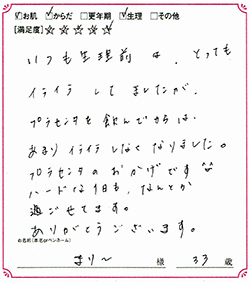 ☑お肌 ☑からだ □更年期 ☑生理 □その他
[満足度]☆☆☆☆☆
いつも生理前は、とっても
イライラしてましたが、
プラセンタを飲んでからは、
あまりイライラしなくなりました。
プラセンタのおかげです^^
ハードな1日も、なんとか
過ごせてます。
ありがとうございます。
お名前(本名orペンネーム)
まり〜 様 33 歳